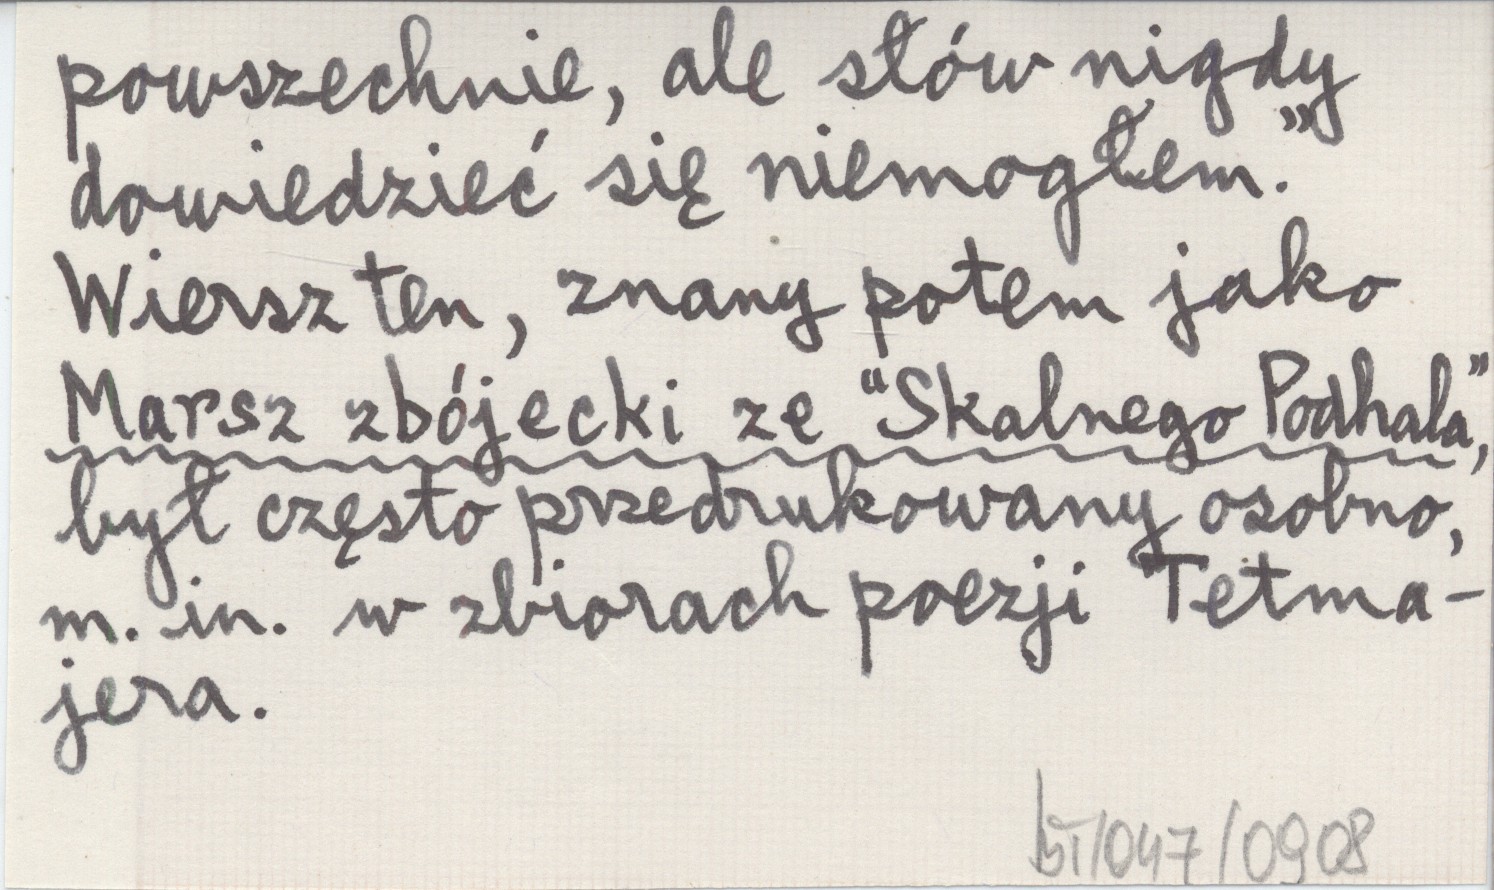 powszechnie, ale słów nigdy
dowiedzieć się niemogłem.”
Wiersz ten, znany potem jako
Marsz zbójecki ze “Skalnego Podhala”,
był często przedrukowany osobno,
m. in. w zbiorach poezji Tetma-
jera.
/047/0908